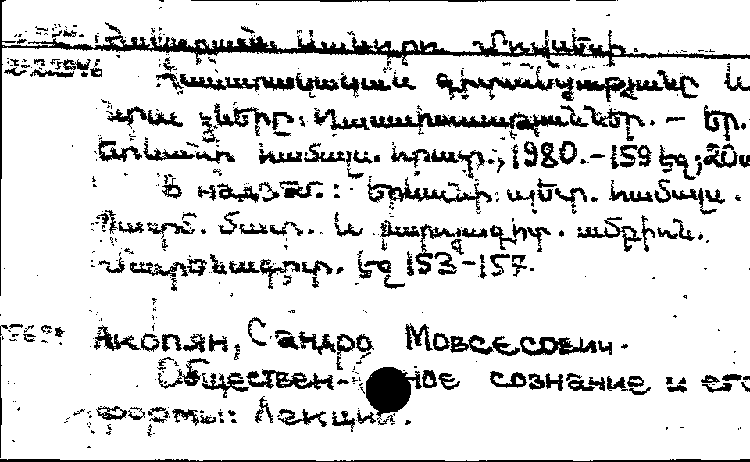 Հակոբյան Սանդրո Մովսեսի.
Հասարակական գիտակցությունը և
նրա ձևերը: Դասախոսություններ. – Եր.
Երևանի համալս. հրատ., 1980.–159 էջ; 20ս
В надзаг.: Երևանի պետ. համալս.
Պատմ. մատ. և բարոյագիտ. ամբիոն.
Մատենագիտ. էջ 153–157.
Акопян, Сандро Мовсесович.
Обществен-ное сознание и его
формы: Лекции.